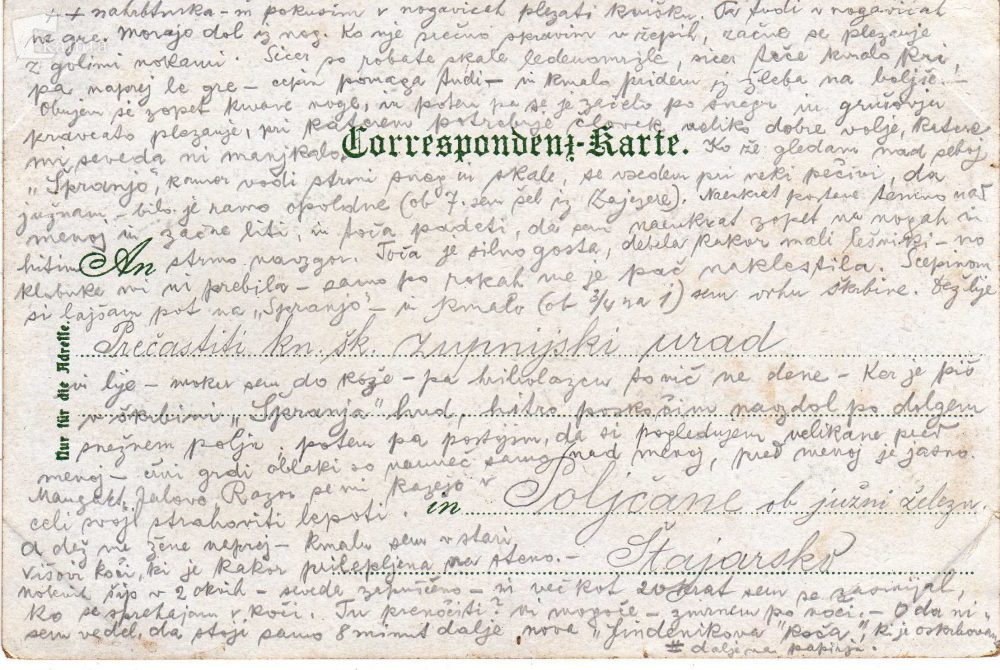 nahrbtnika - in pokusim v nogavicah plezati kvišku. Tu tudi v nogavicah
ne gre. Morajo dol iz nog. Ko vse srečno spravim v žepih, začne se plezanje
z golimi nokami. Sicer so robate skale ledenomrzle, sicer teče kmalo kri,
pa naprej le gre - cepin pomaga tudi - in kmalo pridem iz žleba na boljše. -
Obujem si zopet krvave noge, in potem pa se je začelo po snegu in grušovju
pravcato plezanje, pri katerem potrebuje človek veliko dobre volje, katere
Correspondenz-Karte.
mi seveda ni manjkalo. Ko že gledam nad seboj
"Špranjo", kamor vodi strmi sneg in skale, se vsedem pri neki pečini, da
južnam - bilo je ravno opoldne (ob 7. sem šel iz Zajezere). Naenkrat postane temno nad
menoj in začne liti, in toča padati, da sem naenkrat zopet na nogah in
hitim strmo navzgor. Toča je silno gosta, debela kakor mali lešniki - no
An
klobuka mi ni prebila - samo po rokah me je pač naklestila. Scepinom
si lajšam pot na "Špranjo" - in kmalo (ob 3/4 na 1) sem vrhu škrbine. Dež lije
Nur für die Adresse.
Prečastiti kn. šk. župnijski urad
vi lije - moker sem do kože - pa hribolazcu to nič ne dene - Ker je piš
v škrbini "Špranja" hud, hitro poskočim navzdol po dolgem
snežnem polju, potem pa postojim, da si pogledujem velikane pred
menoj - črni grdi oblaki so namreč samo nad menoj, pred menoj je jasno.
Mangart, Jalovc Razor se mi kažejo v
celi svoji strahoviti lepoti.
in Poljčane ob južni želzn.
A dež me žene naprej - kmalu sem v stari
Višovi koči, ki je kakor prilepljena na steno. -
Štajarsko
šip v 2 oknih - seveda zapuščeno - in več kot 20krat sem se zasmejal,
ko se sprehajam v koči. Tu prenočiti? ni mogoče - zmrznem po noči. - O da ni
sem vedel, da stoji samo 8 minut dalje nova "Findenikova" koča", ki je oskrbovana
# dalje na papirju.